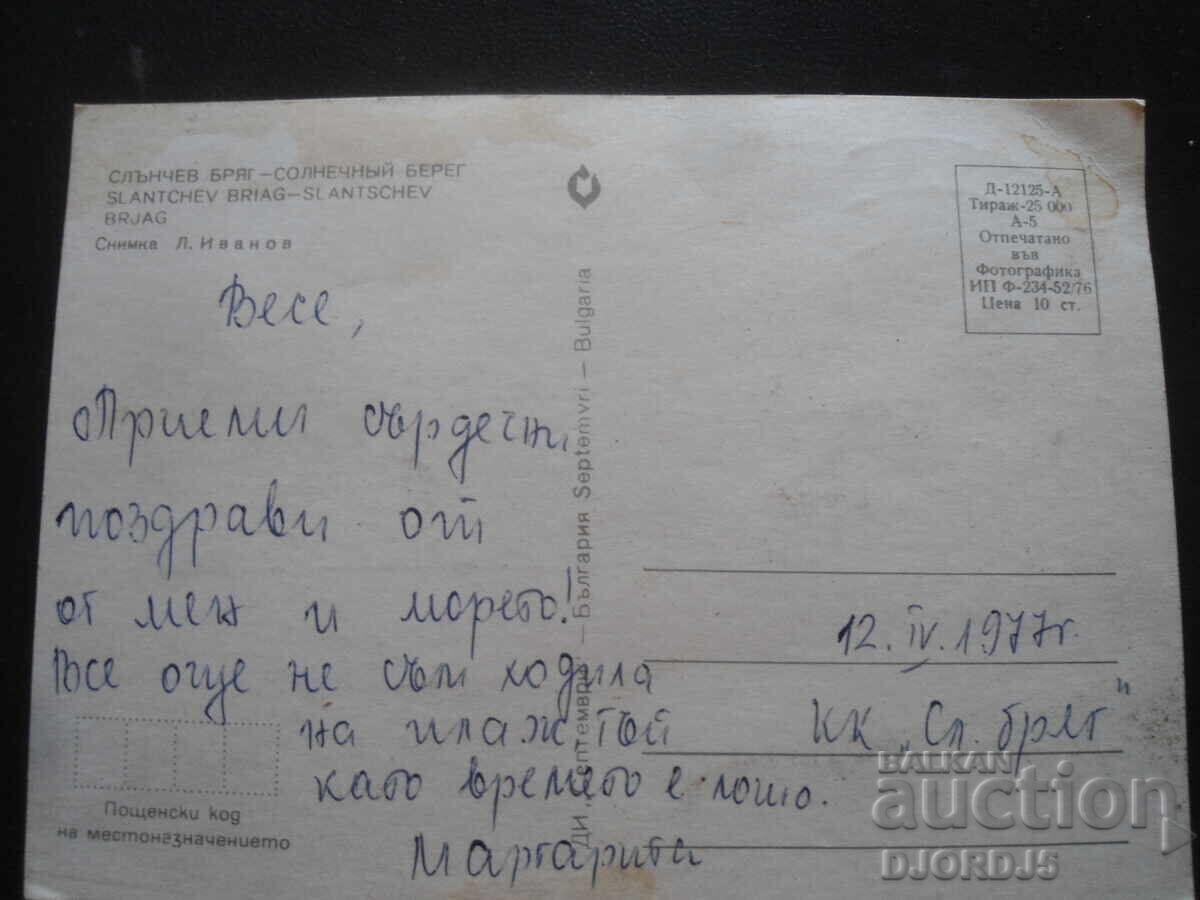 СЛЪНЧЕВ БРЯГ–СОЛНЕЧНЫЙ БЕРЕГ
SLANTCHEV BRIAG–SLANTSCHEV
BRJAG
Снимка Л. Иванов
Весе,
Приеми сърдечни
поздрави от
от мен и морето!
Все още не съм ходила
на плаж тъй
като времето е лошо.
Маргарита
Пощенски код
на местоназначението
ДИ „Септември" – България Septemvri – Bulgaria
Д-12125-А
Тираж-25 000
А-5
Отпечатано
във
Фотографика
ИП Ф-234-52/76
Цена 10 ст.
12. IV. 1977г.
КК „Сл. бряг"
BALKAN
auction
DJORDJ5